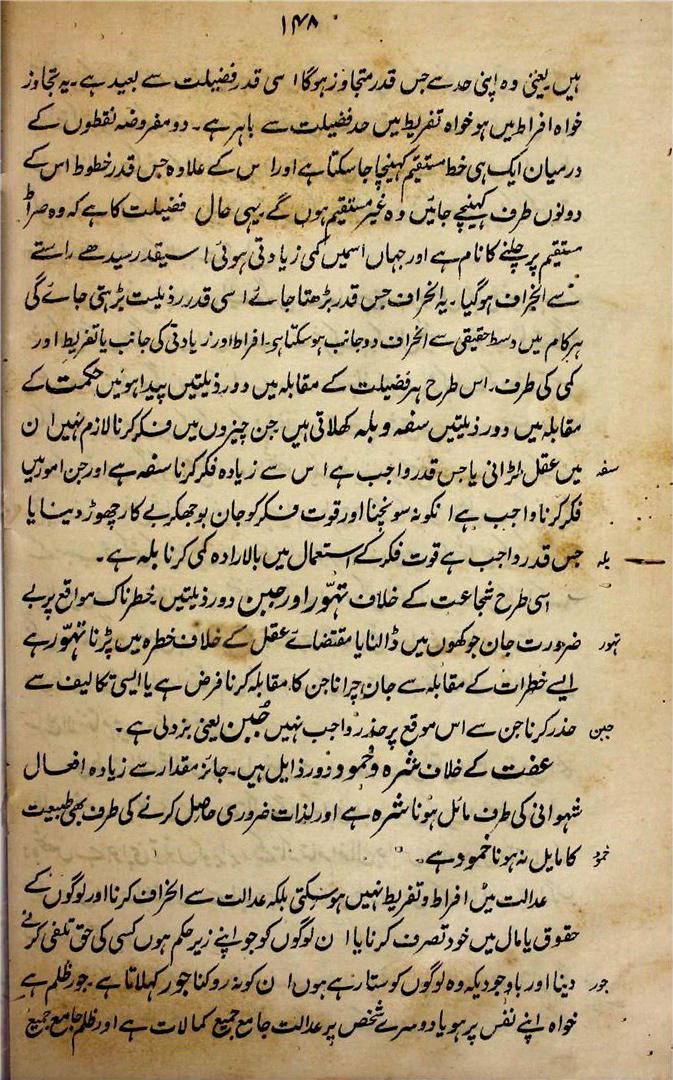 ۱۴۸
ہیں یعنی وہ اپنی حد سے جس قدر متجاوز ہوگا اسی قدر فضیلت سے بعید ہے۔ یہ تجاوز
خواہ افراط میں ہو خواہ تفریط میں حد فضیلت سے باہر ہے۔ دو مفروضہ نقطوں کے
درمیان ایک ہی خط مستقیم کہینچا جا سکتا ہے اور اس کے علاوہ جس قدر خطوط اس کے
دونوں طرف کہینچے جائیں وہ غیر مستقیم ہوں گے یہی حال فضیلت کا ہے کہ وہ صراط
مستقیم پر چلنے کا نام ہے اور جہاں اسمیں کمی زیادتی ہوئی اسیقدر سیدھے راستے
سے انحراف ہوگیا۔ یہ انحراف جس قدر بڑھتا جائے اسی قدر رذیلت بڑہتی جائے گی
ہر کام میں وسط حقیقی سے انحراف دو جانب ہو سکتا ہو۔ افراط اور زیادتی کی جانب یا تفریط اور
کمی کی طرف۔ اس طرح ہر فضیلت کے مقابلہ میں دو رذیلتیں پیدا ہوئیں حکمت کے
مقابلہ میں دو رذیلتیں سفہ و بلہ کہلاتی ہیں جن چیزوں میں فکر کرنا لازم نہیں ان
سفہ میں عقل لڑانی یا جس قدر واجب ہے اس سے زیادہ فکر کرنا سفہ ہے اور جن امور میں
فکر کرنا واجب ہے انکو نہ سونچنا اور قوت فکر کو جان بوجھکر بے کار چھوڑ دینا یا
بلہ جس قدر واجب ہے قوت فکر کے استعمال میں بالارادہ کمی کرنا بلہ ہے۔
اسی طرح شجاعت کے خلاف تہوّر اور جبن دو رذیلتیں خطرناک مواقع پر بے
تہور ضرورت جان جوکھوں میں ڈالنا یا مقتضائے عقل کے خلاف خطرہ میں پڑنا تہوّر ہے
ایسے خطرات کے مقابلہ سے جان چرانا جن کا مقابلہ کرنا فرض ہے یا ایسی تکالیف سے
جبن حذر کرنا جن سے اس موقع پر حذر واجب نہیں جُبن یعنی بزدلی ہے۔
عفت کے خلاف شرہ و خمود دو رذایل ہیں۔ جائز مقدار سے زیادہ افعال
شہوانی کی طرف مائل ہونا شرہ ہے اور لذات ضروری حاصل کرنے کی طرف بھی طبیعت
خمود کا مایل نہ ہونا خمود ہے۔
عدالت میں افراط و تفریط نہیں ہو سکتی بلکہ عدالت سے انحراف کرنا اور لوگوں کے
حقوق یا مال میں خود تصرف کرنا یا ان لوگوں کو جو اپنے زیر حکم ہوں کسی کی حق تلفی کرنے
جور دینا اور باوجودیکہ وہ لوگوں کو ستا رہے ہوں ان کو نہ روکنا جور کہلاتا ہے جور ظلم ہے
خواہ اپنے نفس پر ہو یا دوسرے شخص پر عدالت جامع جمیع کمالات ہے اور ظلم جامع جمیع